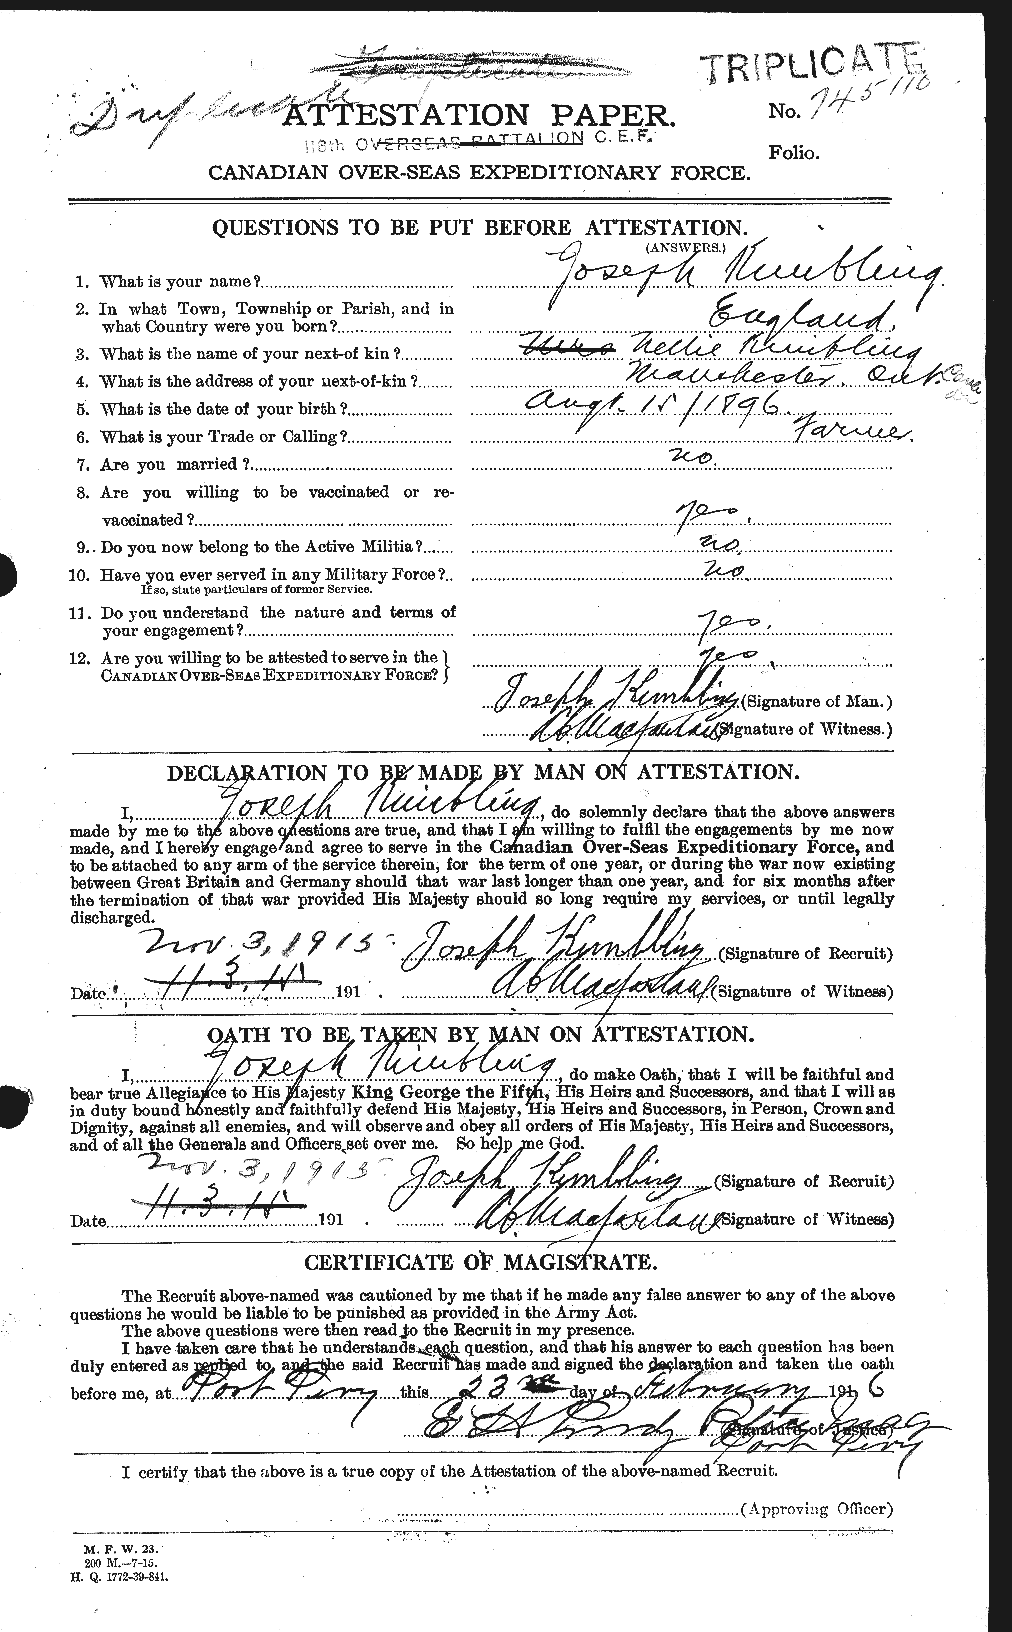 TRIPLICATE
Duplicate
ATTESTATION PAPER.
No. 745110
116th OVERSEAS BATTALION C.E.F.
Folio.
CANADIAN OVER-SEAS EXPEDITIONARY FORCE.
QUESTIONS TO BE PUT BEFORE ATTESTATION.
(ANSWERS.)
1. What is your name? Joseph Kimbling.
2. In what Town, Township or Parish, and in
what Country were you born? England.
3. What is the name of your next-of kin? Mrs Nellie Kimbling
4. What is the address of your next-of-kin? Manchester. Ont. Canada
5. What is the date of your birth? Augt. 15/1896.
6. What is your Trade or Calling? Farmer.
7. Are you married? no.
8. Are you willing to be vaccinated or re-
vaccinated? yes.
9. Do you now belong to the Active Militia? no.
10. Have you ever served in any Military Force? no.
If so, state particulars of former Service.
11. Do you understand the nature and terms of
your engagement? yes.
12. Are you willing to be attested to serve in the
CANADIAN OVER-SEAS EXPEDITIONARY FORCE? yes.
Joseph Kimbling (Signature of Man.)
(Signature of Witness.)
DECLARATION TO BE MADE BY MAN ON ATTESTATION.
I, Joseph Kimbling, do solemnly declare that the above answers
made by me to the above questions are true, and that I am willing to fulfil the engagements by me now
made, and I hereby engage and agree to serve in the Canadian Over-Seas Expeditionary Force, and
to be attached to any arm of the service therein, for the term of one year, or during the war now existing
between Great Britain and Germany should that war last longer than one year, and for six months after
the termination of that war provided His Majesty should so long require my services, or until legally
discharged.
Nov. 3, 1915 Joseph Kimbling (Signature of Recruit)
Date 11.3.15 191 . (Signature of Witness)
OATH TO BE TAKEN BY MAN ON ATTESTATION.
I, Joseph Kimbling, do make Oath, that I will be faithful and
bear true Allegiance to His Majesty King George the Fifth, His Heirs and Successors, and that I will as
in duty bound honestly and faithfully defend His Majesty, His Heirs and Successors, in Person, Crown and
Dignity, against all enemies, and will observe and obey all orders of His Majesty, His Heirs and Successors,
and of all the Generals and Officers set over me. So help me God.
Nov. 3, 1915 Joseph Kimbling (Signature of Recruit)
Date 11.3.15 191 . (Signature of Witness)
CERTIFICATE OF MAGISTRATE.
The Recruit above-named was cautioned by me that if he made any false answer to any of the above
questions he would be liable to be punished as provided in the Army Act.
The above questions were then read to the Recruit in my presence.
I have taken care that he understands each question, and that his answer to each question has been
duly entered as replied to, and the said Recruit has made and signed the declaration and taken the oath
before me, at Port Perry this 23 day of February 1916
(Signature of Justice)
Port Perry
I certify that the above is a true copy of the Attestation of the above-named Recruit.
(Approving Officer)
M. F. W. 23.
200 M.—7-15.
H. Q. 1772-39-841.